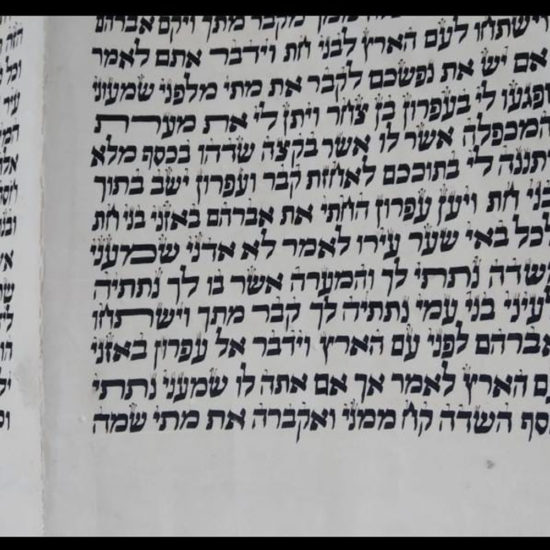 מקבר מתך ויקם אברהם
וישתחו לעם הארץ לבני חת וידבר אתם לאמר
אם יש את נפשכם לקבר את מתי מלפני שמעוני
ופגעו לי בעפרון בן צחר ויתן לי את מערת
המכפלה אשר לו אשר בקצה שדהו בכסף מלא
יתננה לי בתוככם לאחזת קבר ועפרון ישב בתוך
בני חת ויען עפרון החתי את אברהם באזני בני חת
לכל באי שער עירו לאמר לא אדני שמעני
השדה נתתי לך והמערה אשר בו לך נתתיה
לעיני בני עמי נתתיה לך קבר מתך וישתחו
אברהם לפני עם הארץ וידבר אל עפרון באזני
ם הארץ לאמר אך אם אתה לו שמעני נתתי
כסף השדה קח ממני ואקברה את מתי שמה